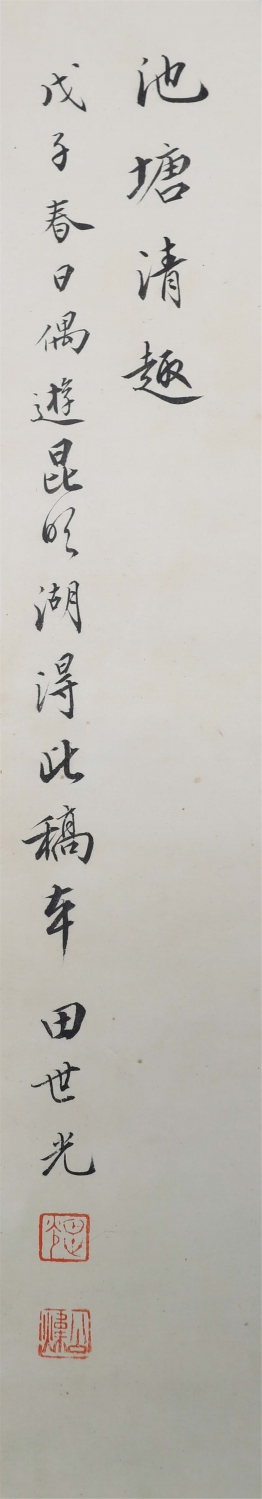 池塘清趣
戊子春日偶遊昆明湖得此稿本 田世光
公煒